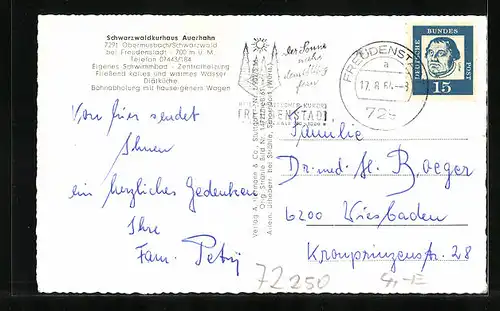 Schwarzwaldkurhaus Auerhahn
7291 Obermusbach/Schwarzwald
bei Freudenstadt - 700 m ü. M.
Telefon 07443/184
Eigenes Schwimmbad - Zentralheizung
Fließend kaltes und warmes Wasser
Diätküche
Bahnabholung mit hauseigenem Wagen
der Sonne
nahe
dem Alltag
fern
FREUDENSTADT
FREUDENST
a
17.8.64-8
729
DEUTSCHE
BUNDES
POST
15
Von hier sendet
Ihnen
ein herzliches Gedenken
Ihre
Fam. Petry
Familie
Dr. med. H. Boeger
6200 Wiesbaden
Kronprinzenstr. 28
72250
4,-E